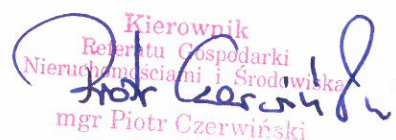 Kierownik
Referatu Gospodarki
Nieruchomościami i Środowiska
Piotr Czerwiński
mgr Piotr Czerwiński